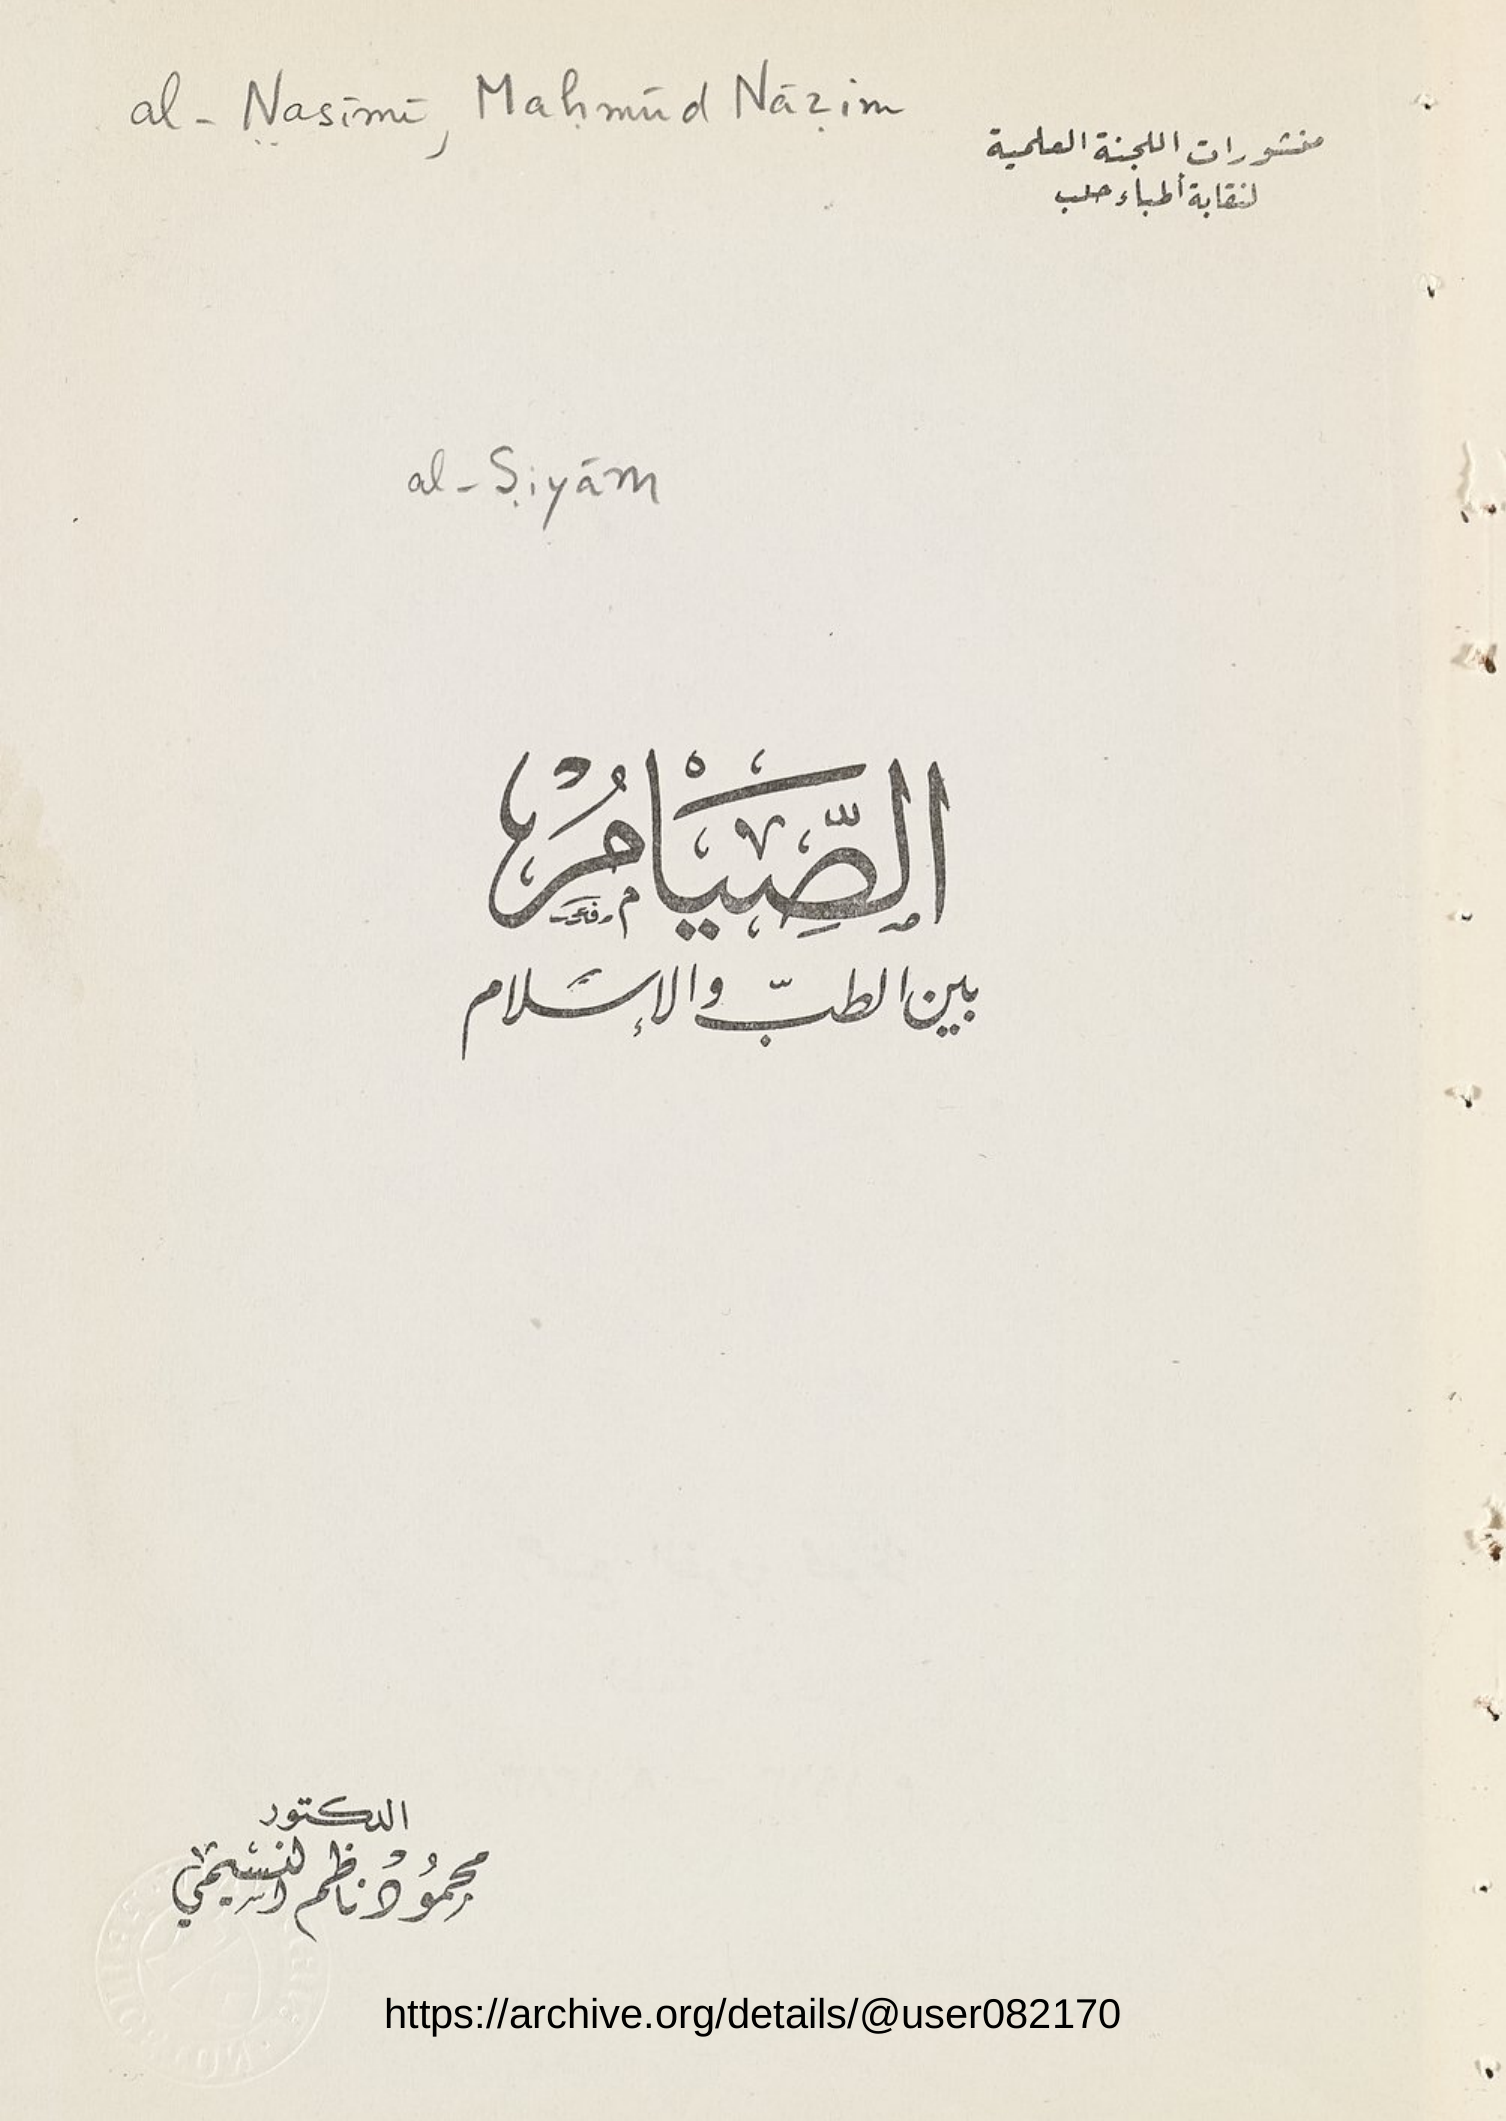 al-Nasīmī, Maḥmūd Nāẓim
منشورات اللجنة العلمية
لنقابة أطباء حلب
al-Ṣiyām
الصِّيَامُ
بين الطبّ والإسلام
الدكتور
محمود ناظم النسيمي
https://archive.org/details/@user082170